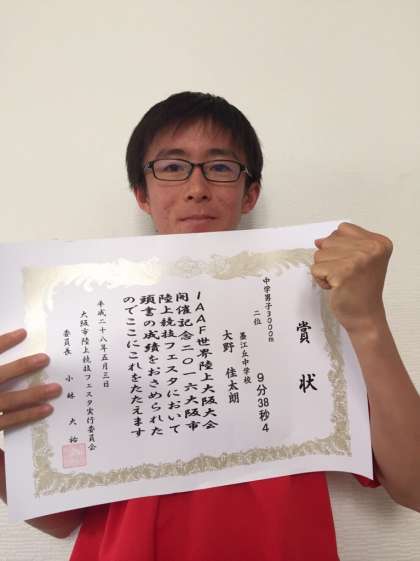 賞状
中学男子3000m
二位 9分38秒4
墨江丘中学校
大野 佳太朗
IAAF世界陸上大阪大会
開催記念二〇一六大阪市
陸上競技フェスタにおいて
頭書の成績をおさめられた
のでここにこれをたたえます
平成二十八年五月三日
大阪市陸上競技フェスタ実行委員会
委員長 小林 大祐